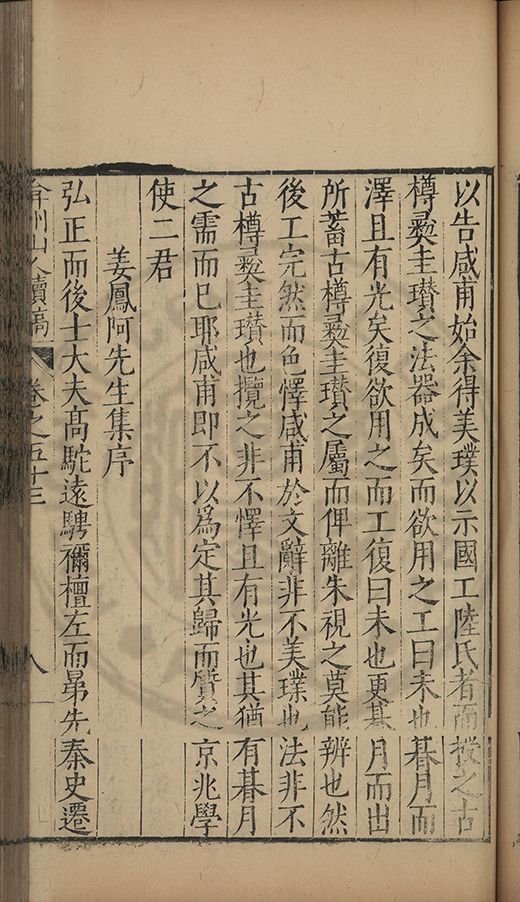 以告咸甫始余得美璞以示國工陸氏者而授之古
樽彝圭瓚之法器成矣而欲用之工曰未也朞月而
澤且有光矣復欲用之而工復曰未也更朞月而出
所蓄古樽彝圭瓚之屬而俾離朱視之莫能辨也然
後工完然而色懌咸甫於文辭非不美璞也法非不
古樽彝圭瓚也攬之非不懌且有光也其猶有朞月
之需而已耶咸甫即不以爲定其歸而質之京兆學
使二君
姜鳳阿先生集序
弘正而後士大夫高駝遠騁禰檀左而昴先秦史遷
弇州山人續稿 卷之五十三 八